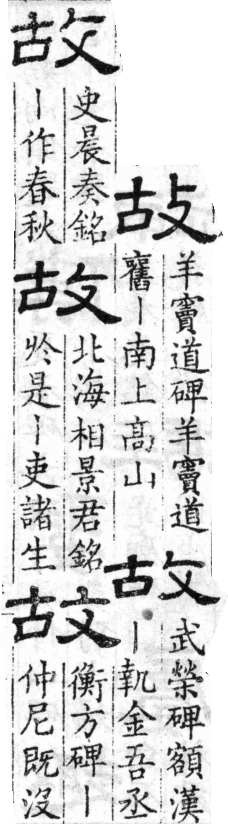 故
羊竇道碑羊竇道
舊｜南上髙山
故
武榮碑額漢
｜執金吾丞
故
史晨奏銘
｜作春秋
故
北海相景君銘
於是｜吏諸生
故
衡方碑｜
仲尼既沒